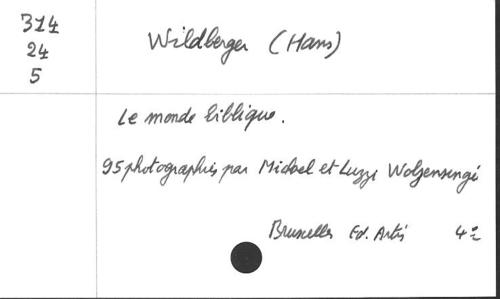 314
24
5
Wildberger (Hans)
Le monde biblique.
95 photographies par Michael et Luzzi Wolgensinger
Bruxelles Ed. Artis 4º